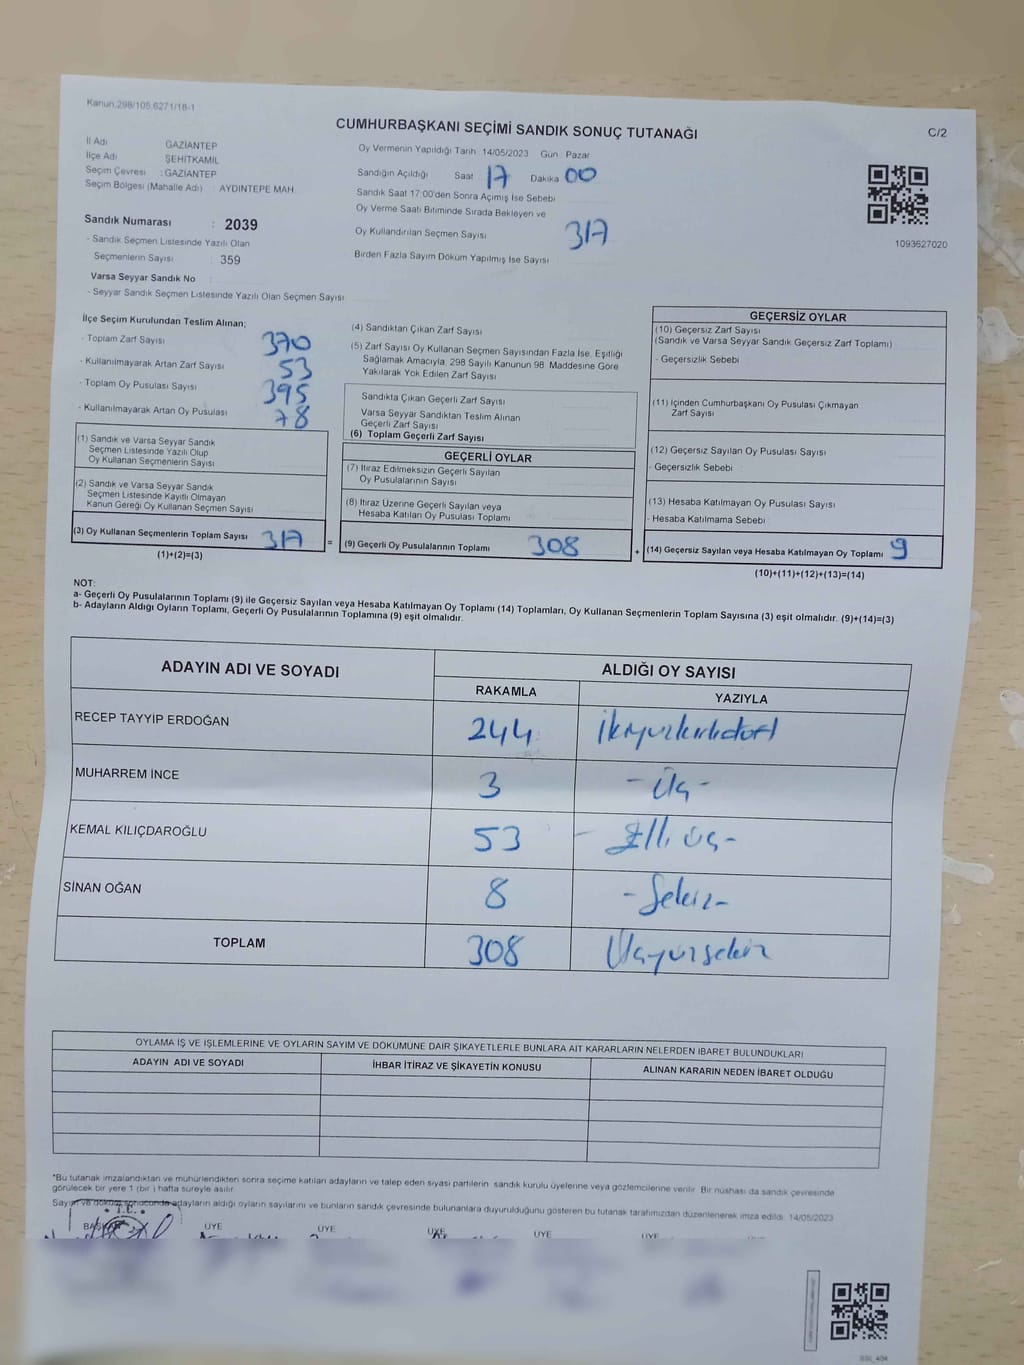 Kanun.298/105,6271/18-1
CUMHURBAŞKANI SEÇİMİ SANDIK SONUÇ TUTANAĞI
C/2
İl Adı GAZİANTEP
İlçe Adı ŞEHİTKAMİL
Seçim Çevresi : GAZİANTEP
Seçim Bölgesi (Mahalle Adı) : AYDINTEPE MAH.
Oy Vermenin Yapıldığı Tarih 14/05/2023 Gün Pazar
Sandığın Açıldığı Saat 17 Dakika 00
Sandık Saat 17:00'den Sonra Açılmış İse Sebebi
Oy Verme Saati Bitiminde Sırada Bekleyen ve
Oy Kullandırılan Seçmen Sayısı 317
Birden Fazla Sayım Döküm Yapılmış İse Sayısı
1093627020
Sandık Numarası : 2039
- Sandık Seçmen Listesinde Yazılı Olan
Seçmenlerin Sayısı : 359
Varsa Seyyar Sandık No
- Seyyar Sandık Seçmen Listesinde Yazılı Olan Seçmen Sayısı
İlçe Seçim Kurulundan Teslim Alınan;
- Toplam Zarf Sayısı 370
- Kullanılmayarak Artan Zarf Sayısı 53
- Toplam Oy Pusulası Sayısı 395
- Kullanılmayarak Artan Oy Pusulası 78
(1) Sandık ve Varsa Seyyar Sandık
Seçmen Listesinde Yazılı Olup
Oy Kullanan Seçmenlerin Sayısı
(2) Sandık ve Varsa Seyyar Sandık
Seçmen Listesinde Kayıtlı Olmayan
Kanun Gereği Oy Kullanan Seçmen Sayısı
(3) Oy Kullanan Seçmenlerin Toplam Sayısı 317
(1)+(2)=(3)
(4) Sandıktan Çıkan Zarf Sayısı
(5) Zarf Sayısı Oy Kullanan Seçmen Sayısından Fazla İse, Eşitliği
Sağlamak Amacıyla, 298 Sayılı Kanunun 98. Maddesine Göre
Yakılarak Yok Edilen Zarf Sayısı
Sandıkta Çıkan Geçerli Zarf Sayısı
Varsa Seyyar Sandıktan Teslim Alınan
Geçerli Zarf Sayısı
(6) Toplam Geçerli Zarf Sayısı
GEÇERLİ OYLAR
(7) İtiraz Edilmeksizin Geçerli Sayılan
Oy Pusulalarının Sayısı
(8) İtiraz Üzerine Geçerli Sayılan veya
Hesaba Katılan Oy Pusulası Toplamı
= (9) Geçerli Oy Pusulalarının Toplamı 308
GEÇERSİZ OYLAR
(10) Geçersiz Zarf Sayısı
(Sandık ve Varsa Seyyar Sandık Geçersiz Zarf Toplamı)
- Geçersizlik Sebebi
(11) İçinden Cumhurbaşkanı Oy Pusulası Çıkmayan
Zarf Sayısı
(12) Geçersiz Sayılan Oy Pusulası Sayısı
- Geçersizlik Sebebi
(13) Hesaba Katılmayan Oy Pusulası Sayısı
- Hesaba Katılmama Sebebi
+ (14) Geçersiz Sayılan veya Hesaba Katılmayan Oy Toplamı 9
(10)+(11)+(12)+(13)=(14)
NOT:
a- Geçerli Oy Pusulalarının Toplamı (9) ile Geçersiz Sayılan veya Hesaba Katılmayan Oy Toplamı (14) Toplamları, Oy Kullanan Seçmenlerin Toplam Sayısına (3) eşit olmalıdır. (9)+(14)=(3)
b- Adayların Aldığı Oyların Toplamı, Geçerli Oy Pusulalarının Toplamına (9) eşit olmalıdır.
ADAYIN ADI VE SOYADI
ALDIĞI OY SAYISI
RAKAMLA YAZIYLA
RECEP TAYYİP ERDOĞAN 244 ikiyüzkırkdört
MUHARREM İNCE 3 -Üç-
KEMAL KILIÇDAROĞLU 53 - Elli üç-
SİNAN OĞAN 8 -Sekiz-
TOPLAM 308 Üçyüzsekiz
OYLAMA İŞ VE İŞLEMLERİNE VE OYLARIN SAYIM VE DÖKÜMÜNE DAİR ŞİKAYETLERLE BUNLARA AİT KARARLARIN NELERDEN İBARET BULUNDUKLARI
ADAYIN ADI VE SOYADI İHBAR İTİRAZ VE ŞİKAYETİN KONUSU ALINAN KARARIN NEDEN İBARET OLDUĞU
*Bu tutanak imzalandıktan ve mühürlendikten sonra seçime katılan adayların ve talep eden siyasi partilerin sandık kurulu üyelerine veya gözlemcilerine verilir. Bir nüshası da sandık çevresinde
görülecek bir yere 1 (bir ) hafta süreyle asılır.
Sayım ve döküm sonucunda adayların aldığı oyların sayılarını ve bunların sandık çevresinde bulunanlara duyurulduğunu gösteren bu tutanak tarafımızdan düzenlenerek imza edildi. 14/05/2023
T.C.
BAŞKAN ÜYE ÜYE ÜYE ÜYE ÜYE